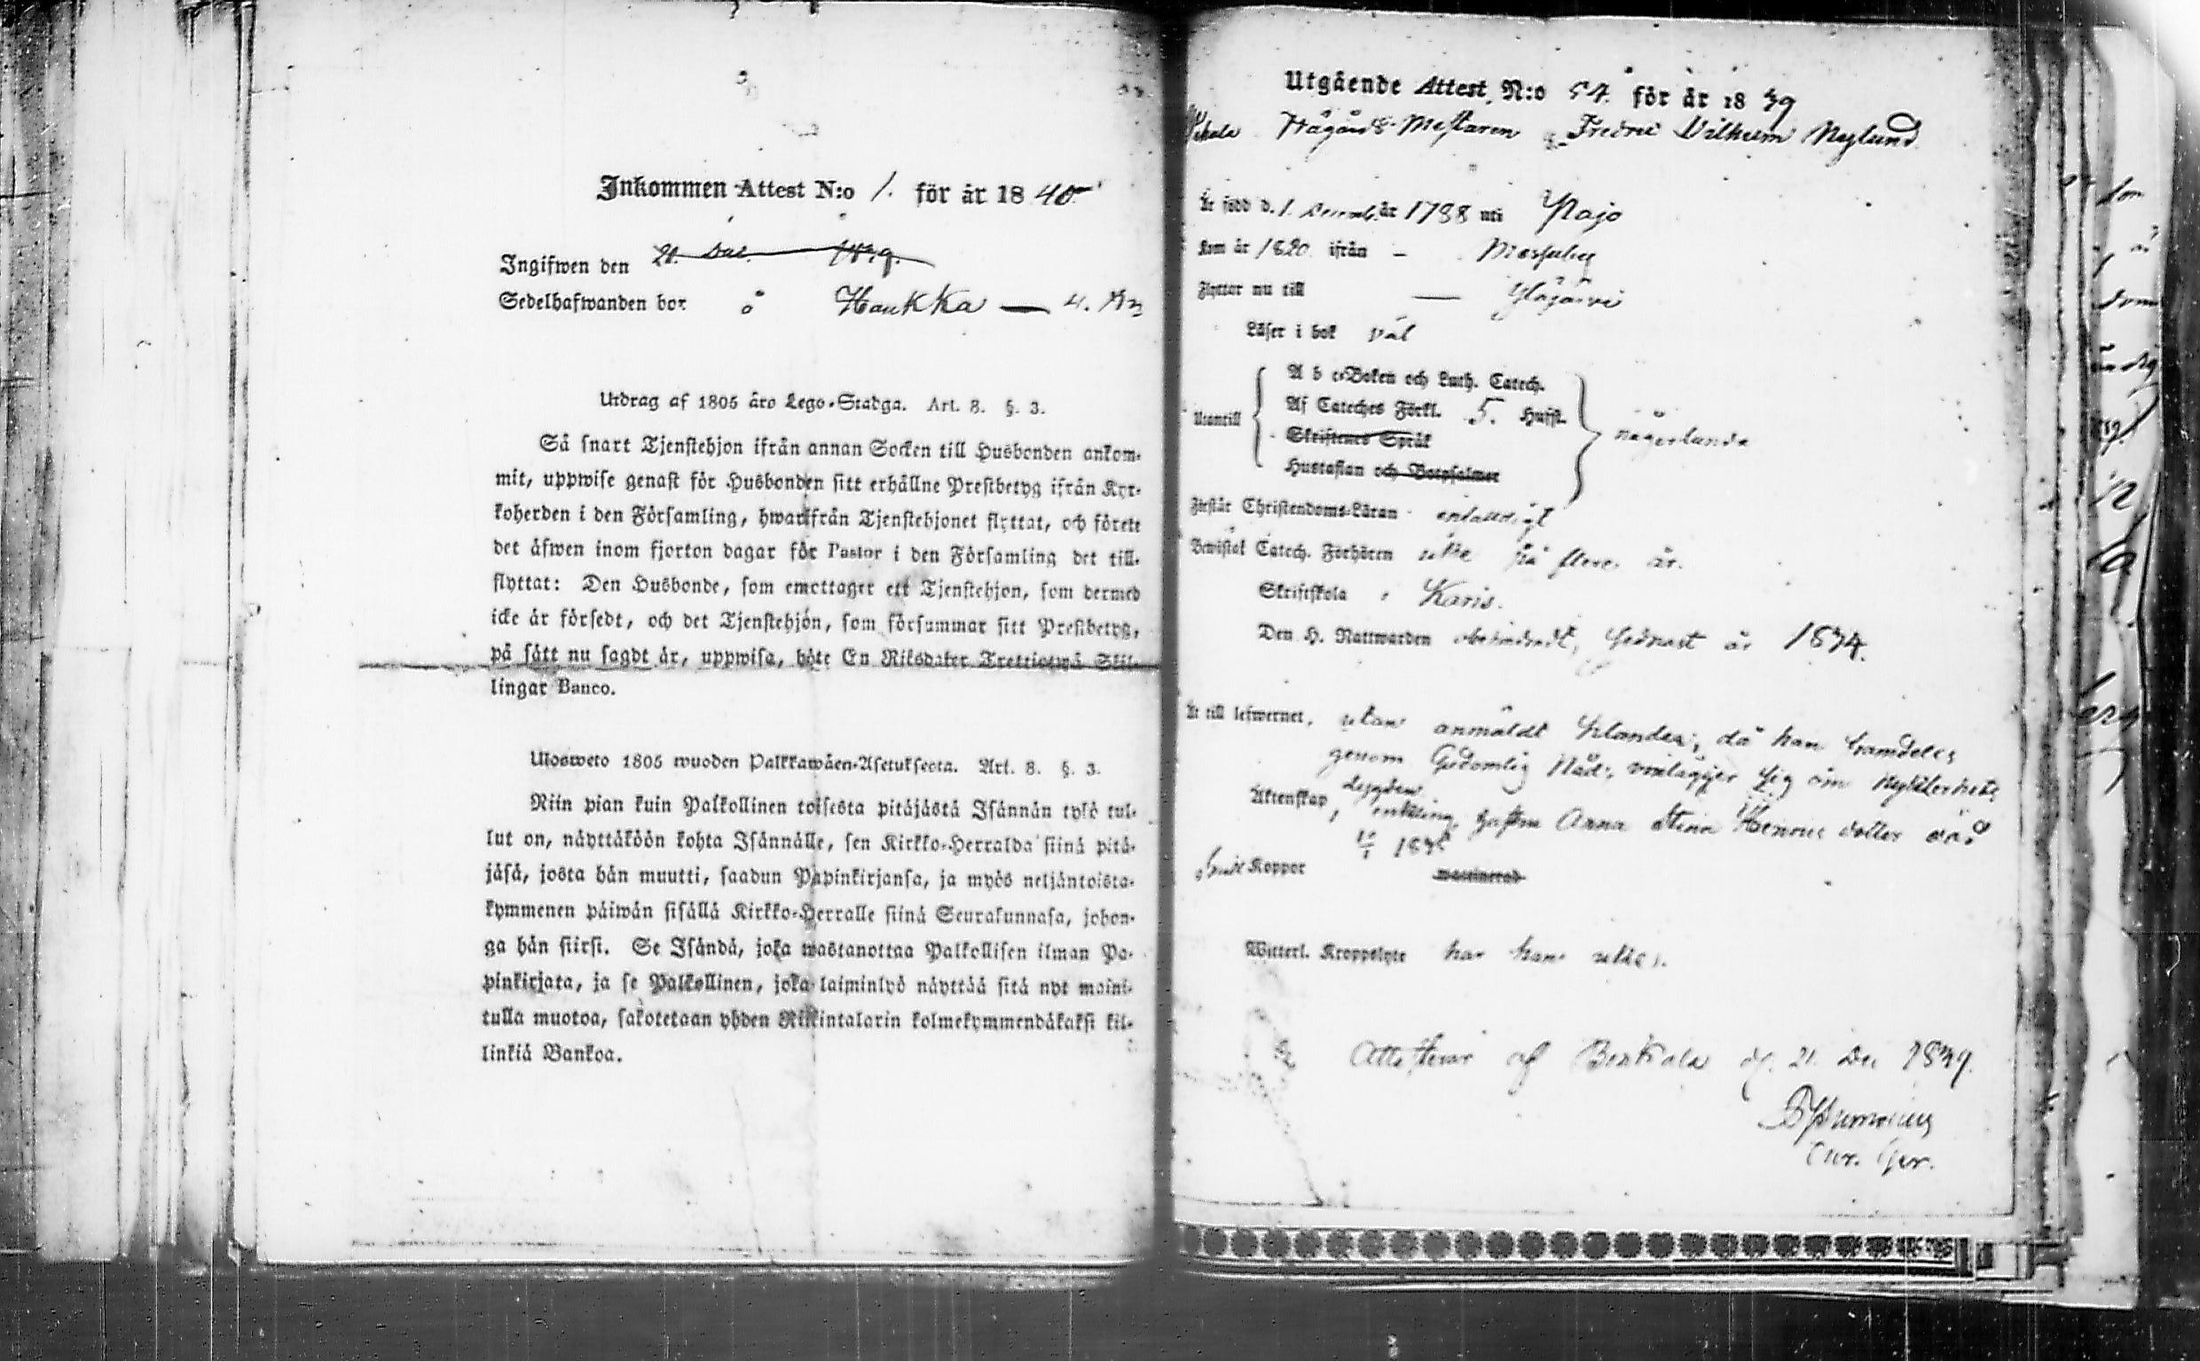 Inkommen Attest N:o 1. för år 1840
Ingifwen den 21. Dec. 1839.
Sedelhafwanden bor å Haukka — 4.
Utdrag af 1805 åro Lego-Stadga. Art. 8. §. 3.
Så snart Tjenstehjon ifrån annan Socken till Husbonden ankom-
mit, uppwise genast för Husbonden sitt erhållne Prestbetyg ifrån Kyr-
koherden i den Församling, hwarifrån Tjenstehjonet flyttat, och förete
det äfwen inom fjorton dagar för Pastor i den Församling det till-
flyttat: Den Husbonde, som emottager ett Tjenstehjon, som dermed
icke är försedt, och det Tjenstehjon, som försummar sitt Prestbetyg,
på sätt nu sagdt är, uppwisa, böte En Riksdaler Trettiotwå Skil-
lingar Banco.
Ulosweto 1805 wuoden Palkkawäen-Asetuksesta. Art. 8. §. 3.
Niin pian kuin Palkollinen toisesta pitäjästä Isännän tykö tul-
lut on, näyttäköön kohta Isännälle, sen Kirkko-Herralda siinä pitä-
jäsä, josta hän muutti, saadun Papinkirjansa, ja myös neljäntoista-
kymmenen päiwän sisällä Kirkko-Herralle siinä Seurakunnasa, johon-
ga hän siirsi. Se Isändä, joka wastanottaa Palkollisen ilman Pa-
pinkirjata, ja se Palkollinen, joka laiminlyö näyttää sitä nyt maini-
tulla muotoa, sakotetaan yhden Riikintalarin kolmekymmendäkaksi kil-
linkiä Bankoa.
Utgående Attest N:o 54. för år 1839
Trägårds-Mästaren Fredric Wilhelm Nylund
Är född d. 1. Decemb. år 1788 uti
Kom år 1820 ifrån — Messuby
Flyttar nu till — Ylöjärvi
Läser i bok väl
A b c-Boken och Luth. Catech.
Af Cateches Förkl. 5. Hufst.
Utantill Skriftenes Språk någorlunda
Hustaflan och Botpsalmer
Förstår Christendoms-Läran enfaldigt
Bewistat Catech. Förhören icke på flere år.
Skriftskola i Karis.
Den H. Nattwarden obehindradt, sednast år 1834.
Är till lefwernet, utan anmäldt klander, då han framdeles
genom Gudomlig Nåd, vinlägger sig om nykterhets
dygden
Äktenskap, enkling, hustru Anna Stina dotter
Haft Koppor waccinerad
Witterl. Kroppslyte har han icke.
Attesterar af Birkala d. 21. Dec 1839.